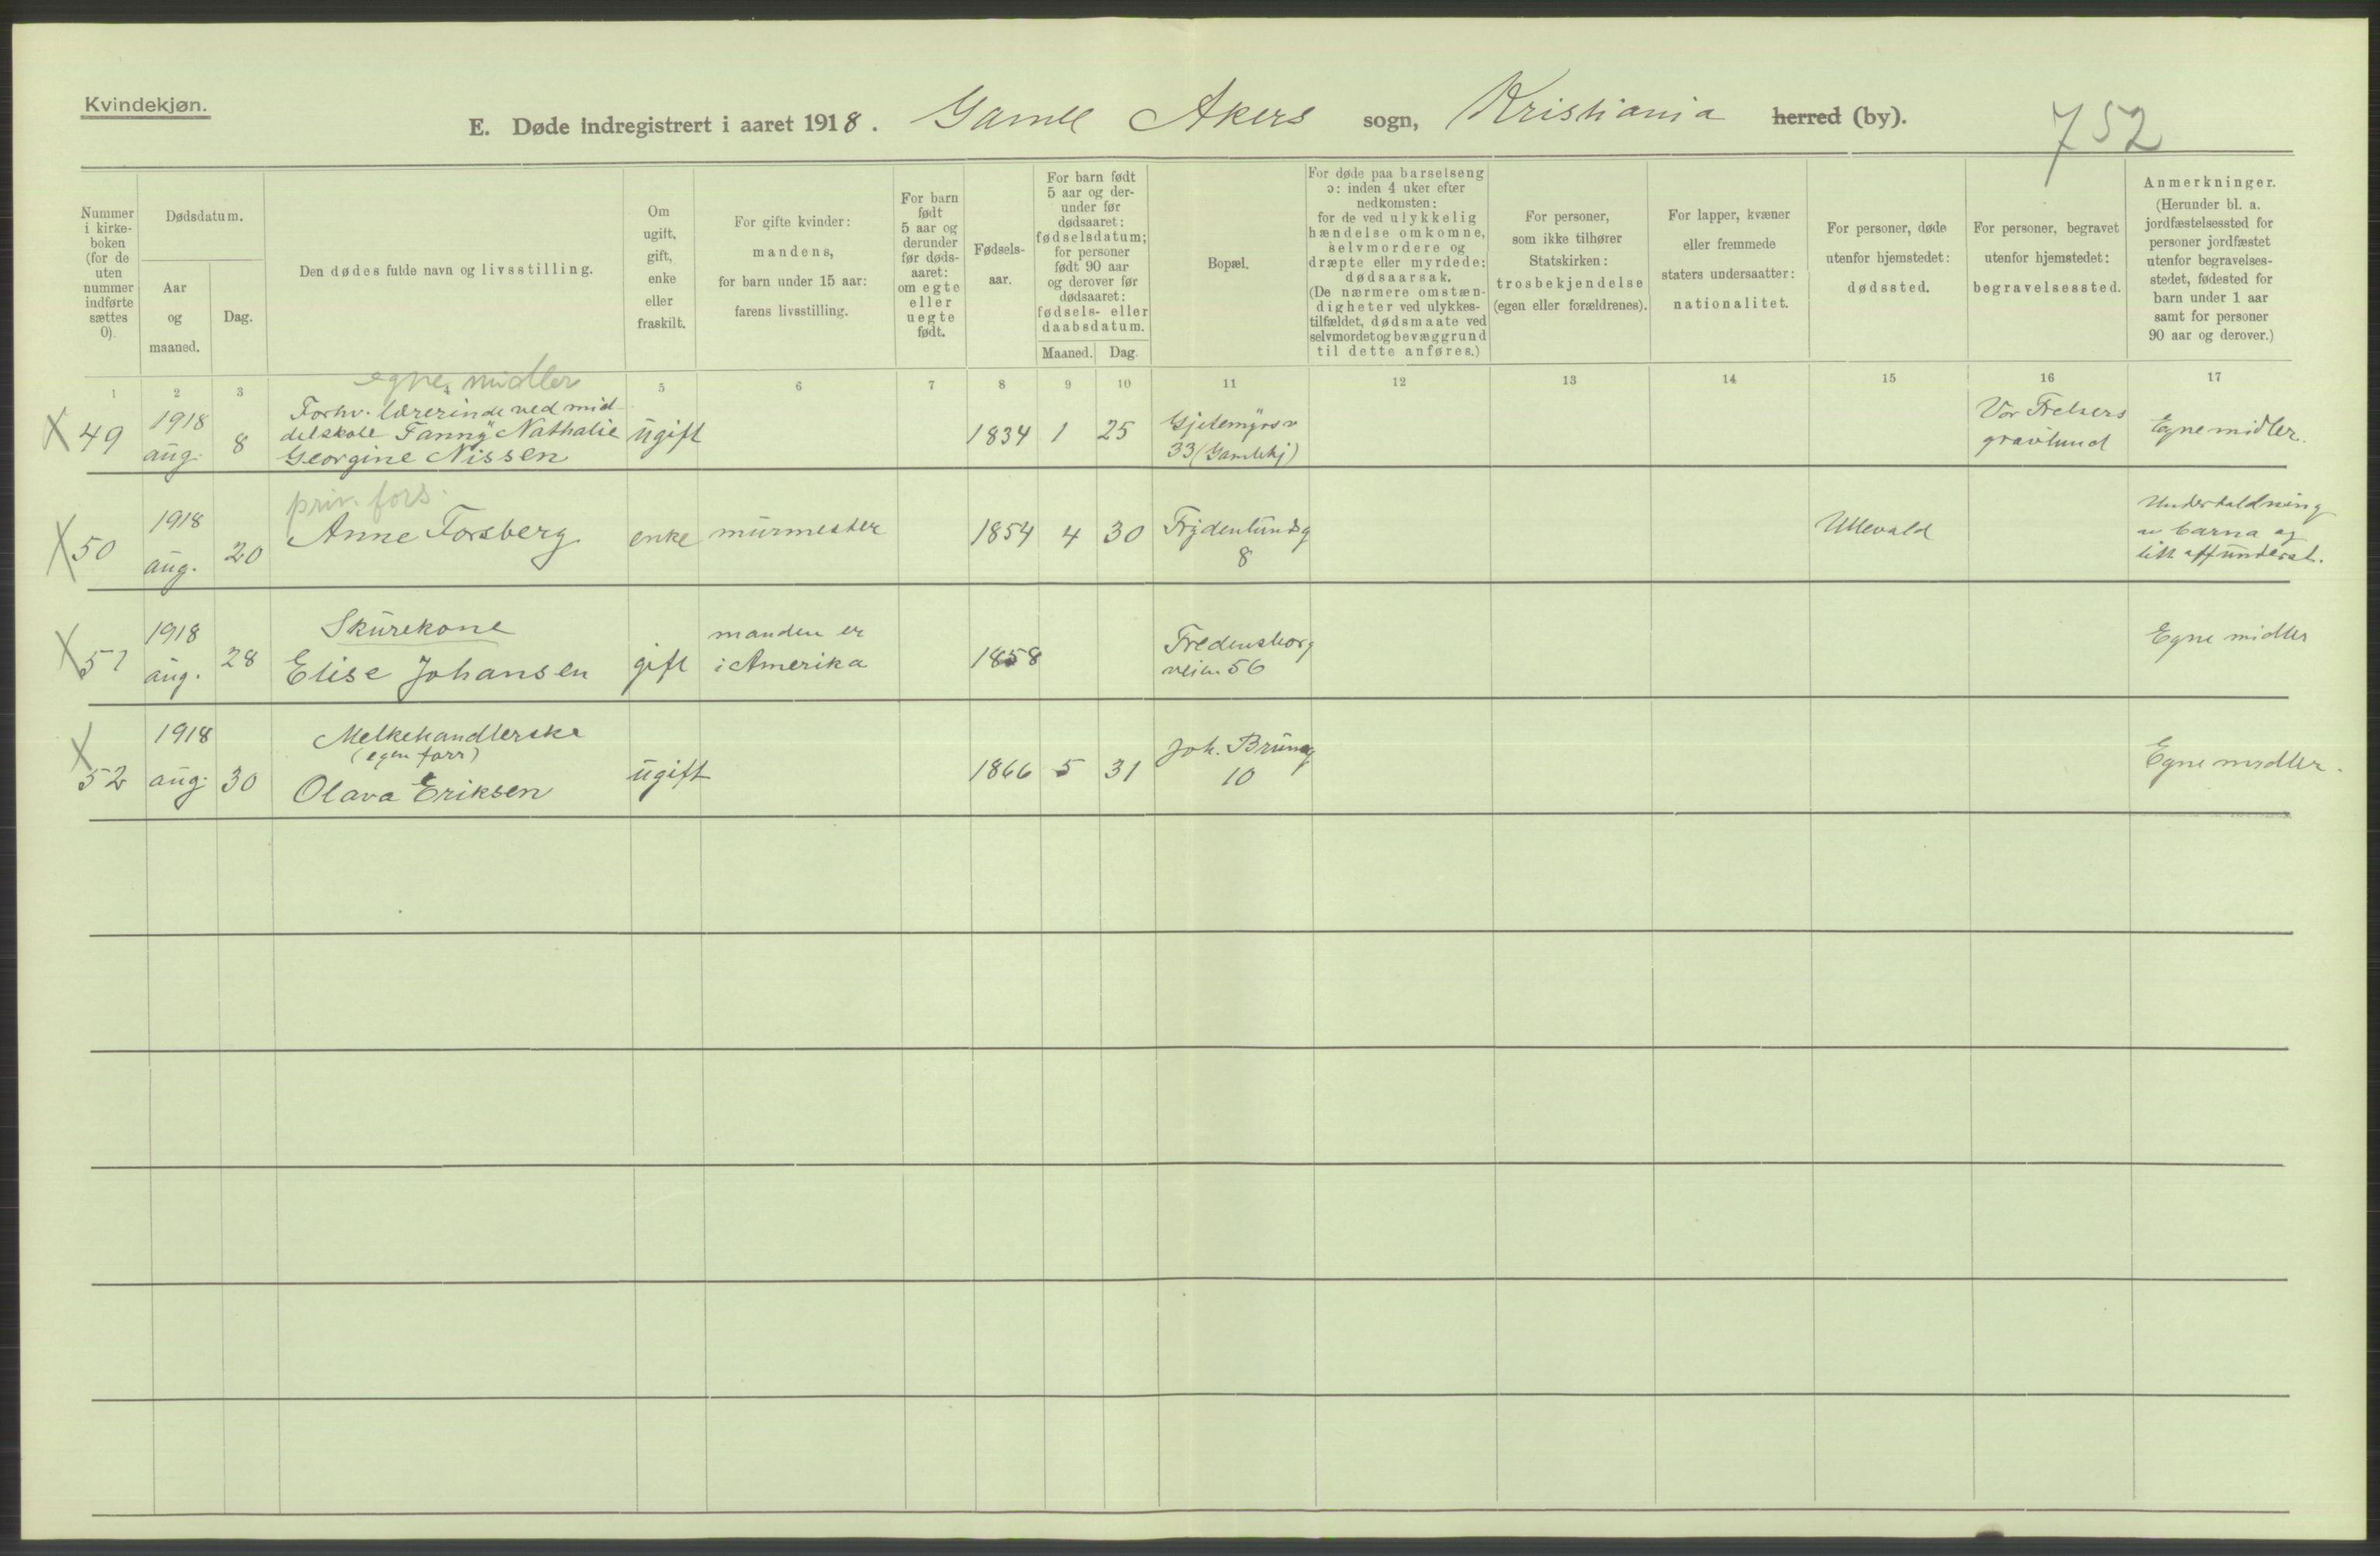 Kvindekjøn.
E. Døde indregistrert i aaret 1918. Gamle Akers sogn, Kristiania herred (by).
752
Nummer
i kirke-
boken
(for de
uten
nummer
indførte
sættes
0).
Dødsdatum.
Aar
og
maaned.
Dag.
Den dødes fulde navn og livsstilling.
Om
ugift,
gift,
enke
eller
fraskilt.
For gifte kvinder:
mandens,
for barn under 15 aar:
farens livsstilling.
For barn
født
5 aar og
derunder
før døds-
aaret:
om egte
eller
uegte
født.
Fødsels-
aar.
For barn født
5 aar og der-
under før
dødsaaret:
fødselsdatum;
for personer
født 90 aar
og derover før
dødsaaret:
fødsels- eller
daabsdatum.
Maaned. Dag.
Bopæl.
For døde paa barselseng
ɔ: inden 4 uker efter
nedkomsten:
for de ved ulykkelig
hændelse omkomne,
selvmordere og
dræpte eller myrdede:
dødsaarsak.
(De nærmere omstæn-
digheter ved ulykkes-
tilfældet, dødsmaate ved
selvmordet og bevæggrund
til dette anføres.)
For personer,
som ikke tilhører
Statskirken:
trosbekjendelse
(egen eller forældrenes).
For lapper, kvæner
eller fremmede
staters undersaatter:
nationalitet.
For personer, døde
utenfor hjemstedet:
dødssted.
For personer, begravet
utenfor hjemstedet:
begravelsessted.
Anmerkninger.
(Herunder bl. a.
jordfæstelsessted for
personer jordfæstet
utenfor begravelses-
stedet, fødested for
barn under 1 aar
samt for personer
90 aar og derover.)
1 2 3 4 5 6 7 8 9 10 11 12 13 14 15 16 17
egne midler
X 49
1918
aug. 8
Forhv. lærerinde ved mid-
delskole Fanny Nathalie
Georgine Nissen
ugift
1834 1 25
Gjetemyrsv
33 (Gamlehj)
Vor Frelsers
gravlund
Egne midler.
priv. fors.
X 50
1918
aug. 20
Anne Forsberg
enke murmester
1854 4 30
Frydenlundsg
8
Ullevold
Underholdning
av barna og
litt off underst.
X 51
1918
aug. 28
Skurekone
Elise Johansen
gift
manden er
i Amerika
1858
Fredensborg
veien 56
Egne midler
X 52
1918
aug. 30
Melkehandlerske
(egen forr)
Olava Eriksen
ugift
1866 5 31
Joh. Brunsg
10
Egne midler.